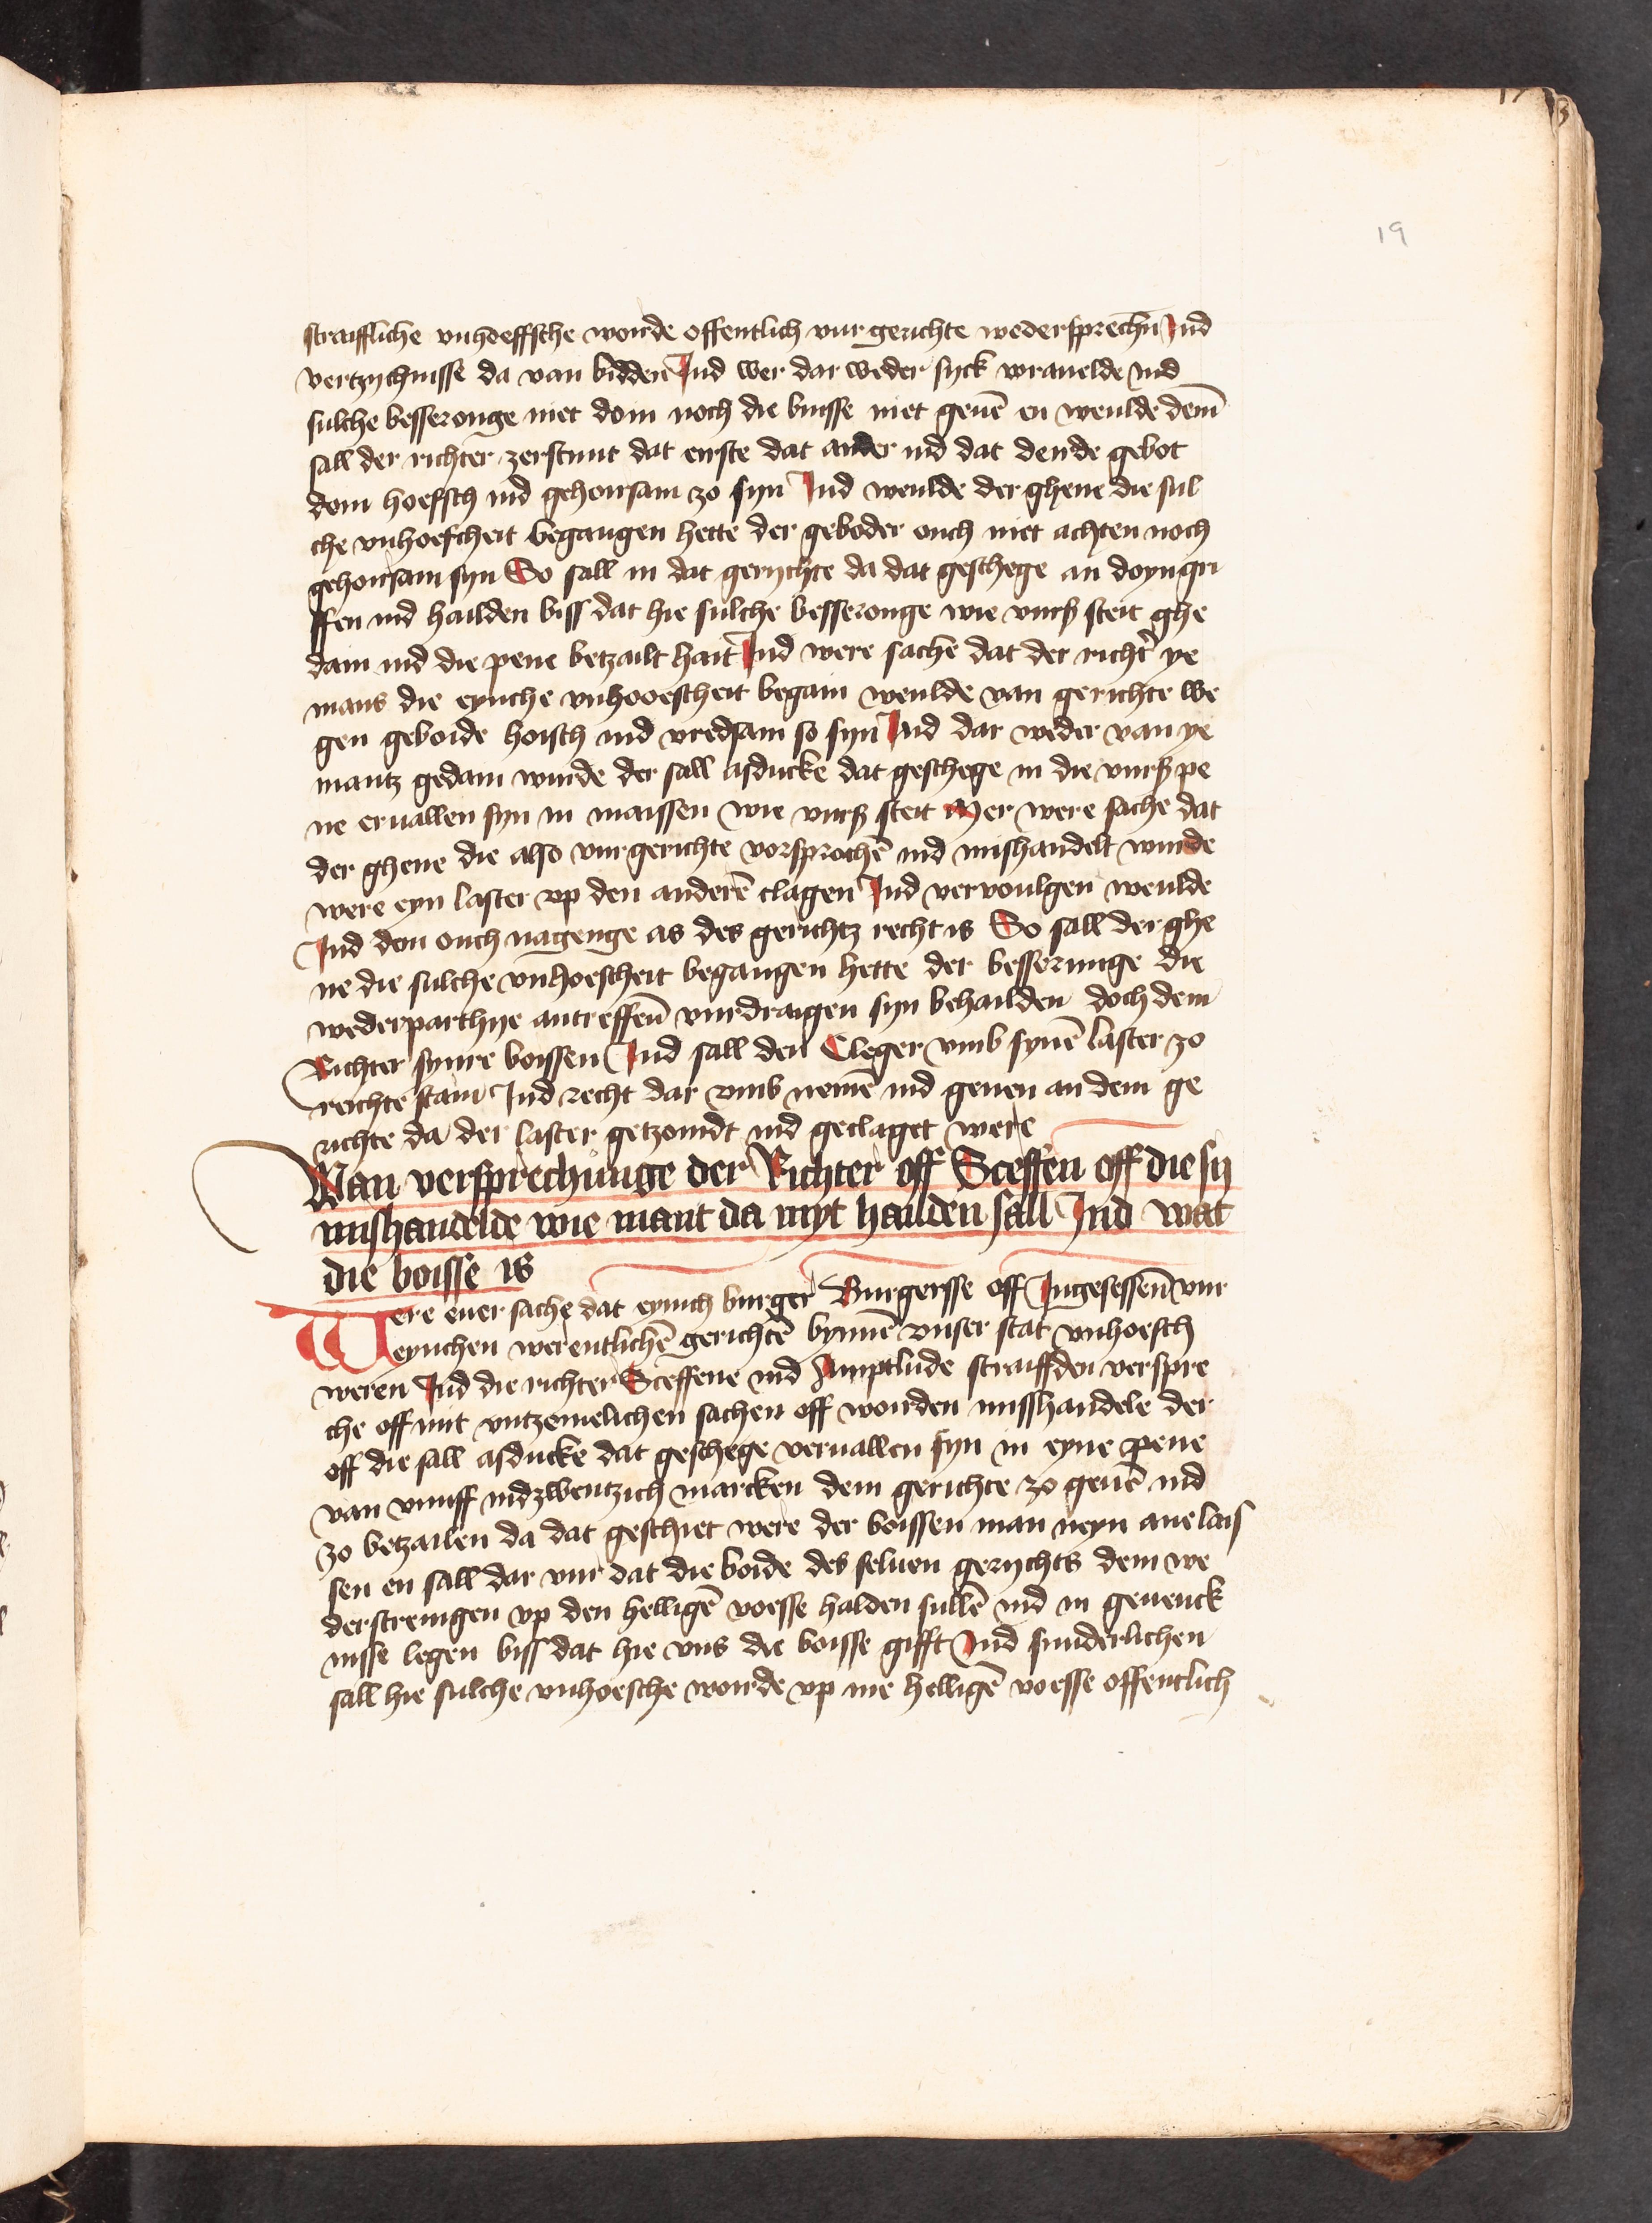 19
straiffliche vnhoeffsche worde offentlich vur gerichte wedersprechn̄ Ind
vertzychnisse da van bidden Ind wer dar weder syck vrauelde ind
sulche besseronge niet doin noch die buisse niet geuē en weulde dem̄
sall der richter zerstunt dat eirste dat ander ind dat derde gebot
doin hoeffsch ind gehorsam zo syn Ind weulde der ghene die sul
che vnhoefcheit begangen hette der geboder ouch niet achten noch
gehorsam syn So sall in dat gerychte da dat geschege an doyn gri
ffen ind hailden biss dat hie sulche besseronge wie vurß steit ghe
dain ind die pene betzailt hait Ind were sache dat der richt' ye
mans die eyniche vnhooescheit begain weulde van gerichte we
gen geboide hoisch ind vredsam so syn Ind dar weder van ye
mantz gedain wurde der sall asducke dat geschege in die vurß pe
ne eruallen syn in maissen wie vurß steit Mer were sache dat
der ghene die also vur gerichte vorsprochē ind mishandelt wurde
were eyn laster vp den anderē clagen Ind vervoulgen weulde
Ind don ouch nagenge as des gerichtz recht is So sall der ghe
ne die sulche vnhoescheit begangen hette der besserunge die
wederparthye antreffen̄ vurdraigen syn behailden doch dem
Richter synre boissen Ind sall den Cleger vmb synē laster zo
reichte stain Ind recht dar vmb nemē ind geuen an dem ge
richte da der laster getzoindt ind geclaget were
Van versprechunge der Richter off Sceffen off die sij
mishandelde wie mant da myt halden sall Ind wat
die boisse is
Were euer sache dat eynich burger Burgersse off Ingesessen̄ vur
eynchen werentlichē gerichtē bynnē vnser stat vnhoesch
weren Ind die richter Sceffene ind Amptlude straiffden verspre
che off mit vntzemelichen sachen off worden misshandele der
off die sall asducke dat geschege veruallen syn in eyne pene
van vunff indzwentzich marcken dem gerichte zo geuē ind
zo betzailen da dat geschiet were der boissen man neyn auelais
sen en sall dar vur dat die boide des seluen gerychts dem we
derstrenigen vp den helligē voesse halden sullē ind in geuenck
nisse legen biss dat hie vns die boisse gifft Ind sunderlichen
sall hie sulche vnhoesche worde vp me helligē voesse offentlich